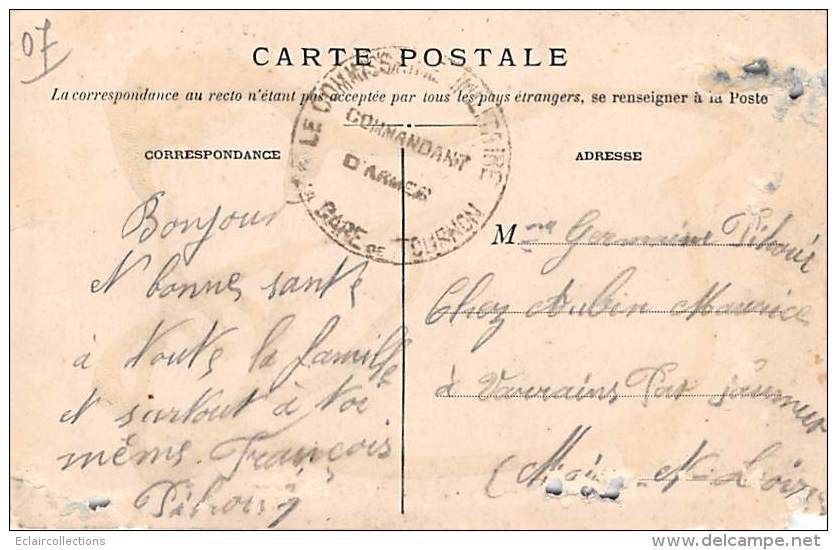 07
CARTE POSTALE
La correspondance au recto n'étant pas acceptée par tous les pays étrangers, se renseigner à la Poste
LE COMMISSAIRE MILITAIRE
COMMANDANT
D'ARMES
GARE DE TOURNON
CORRESPONDANCE
Bonjour
et bonne santé
à toute la famille
et surtout à toi
même. François
Pihoué
ADRESSE
Mme Germaine Pihoué
Chez Aubin Maurice
à Varrains Par Saumur
(Maine-et-Loire
Eclaircollections
delcampe.net